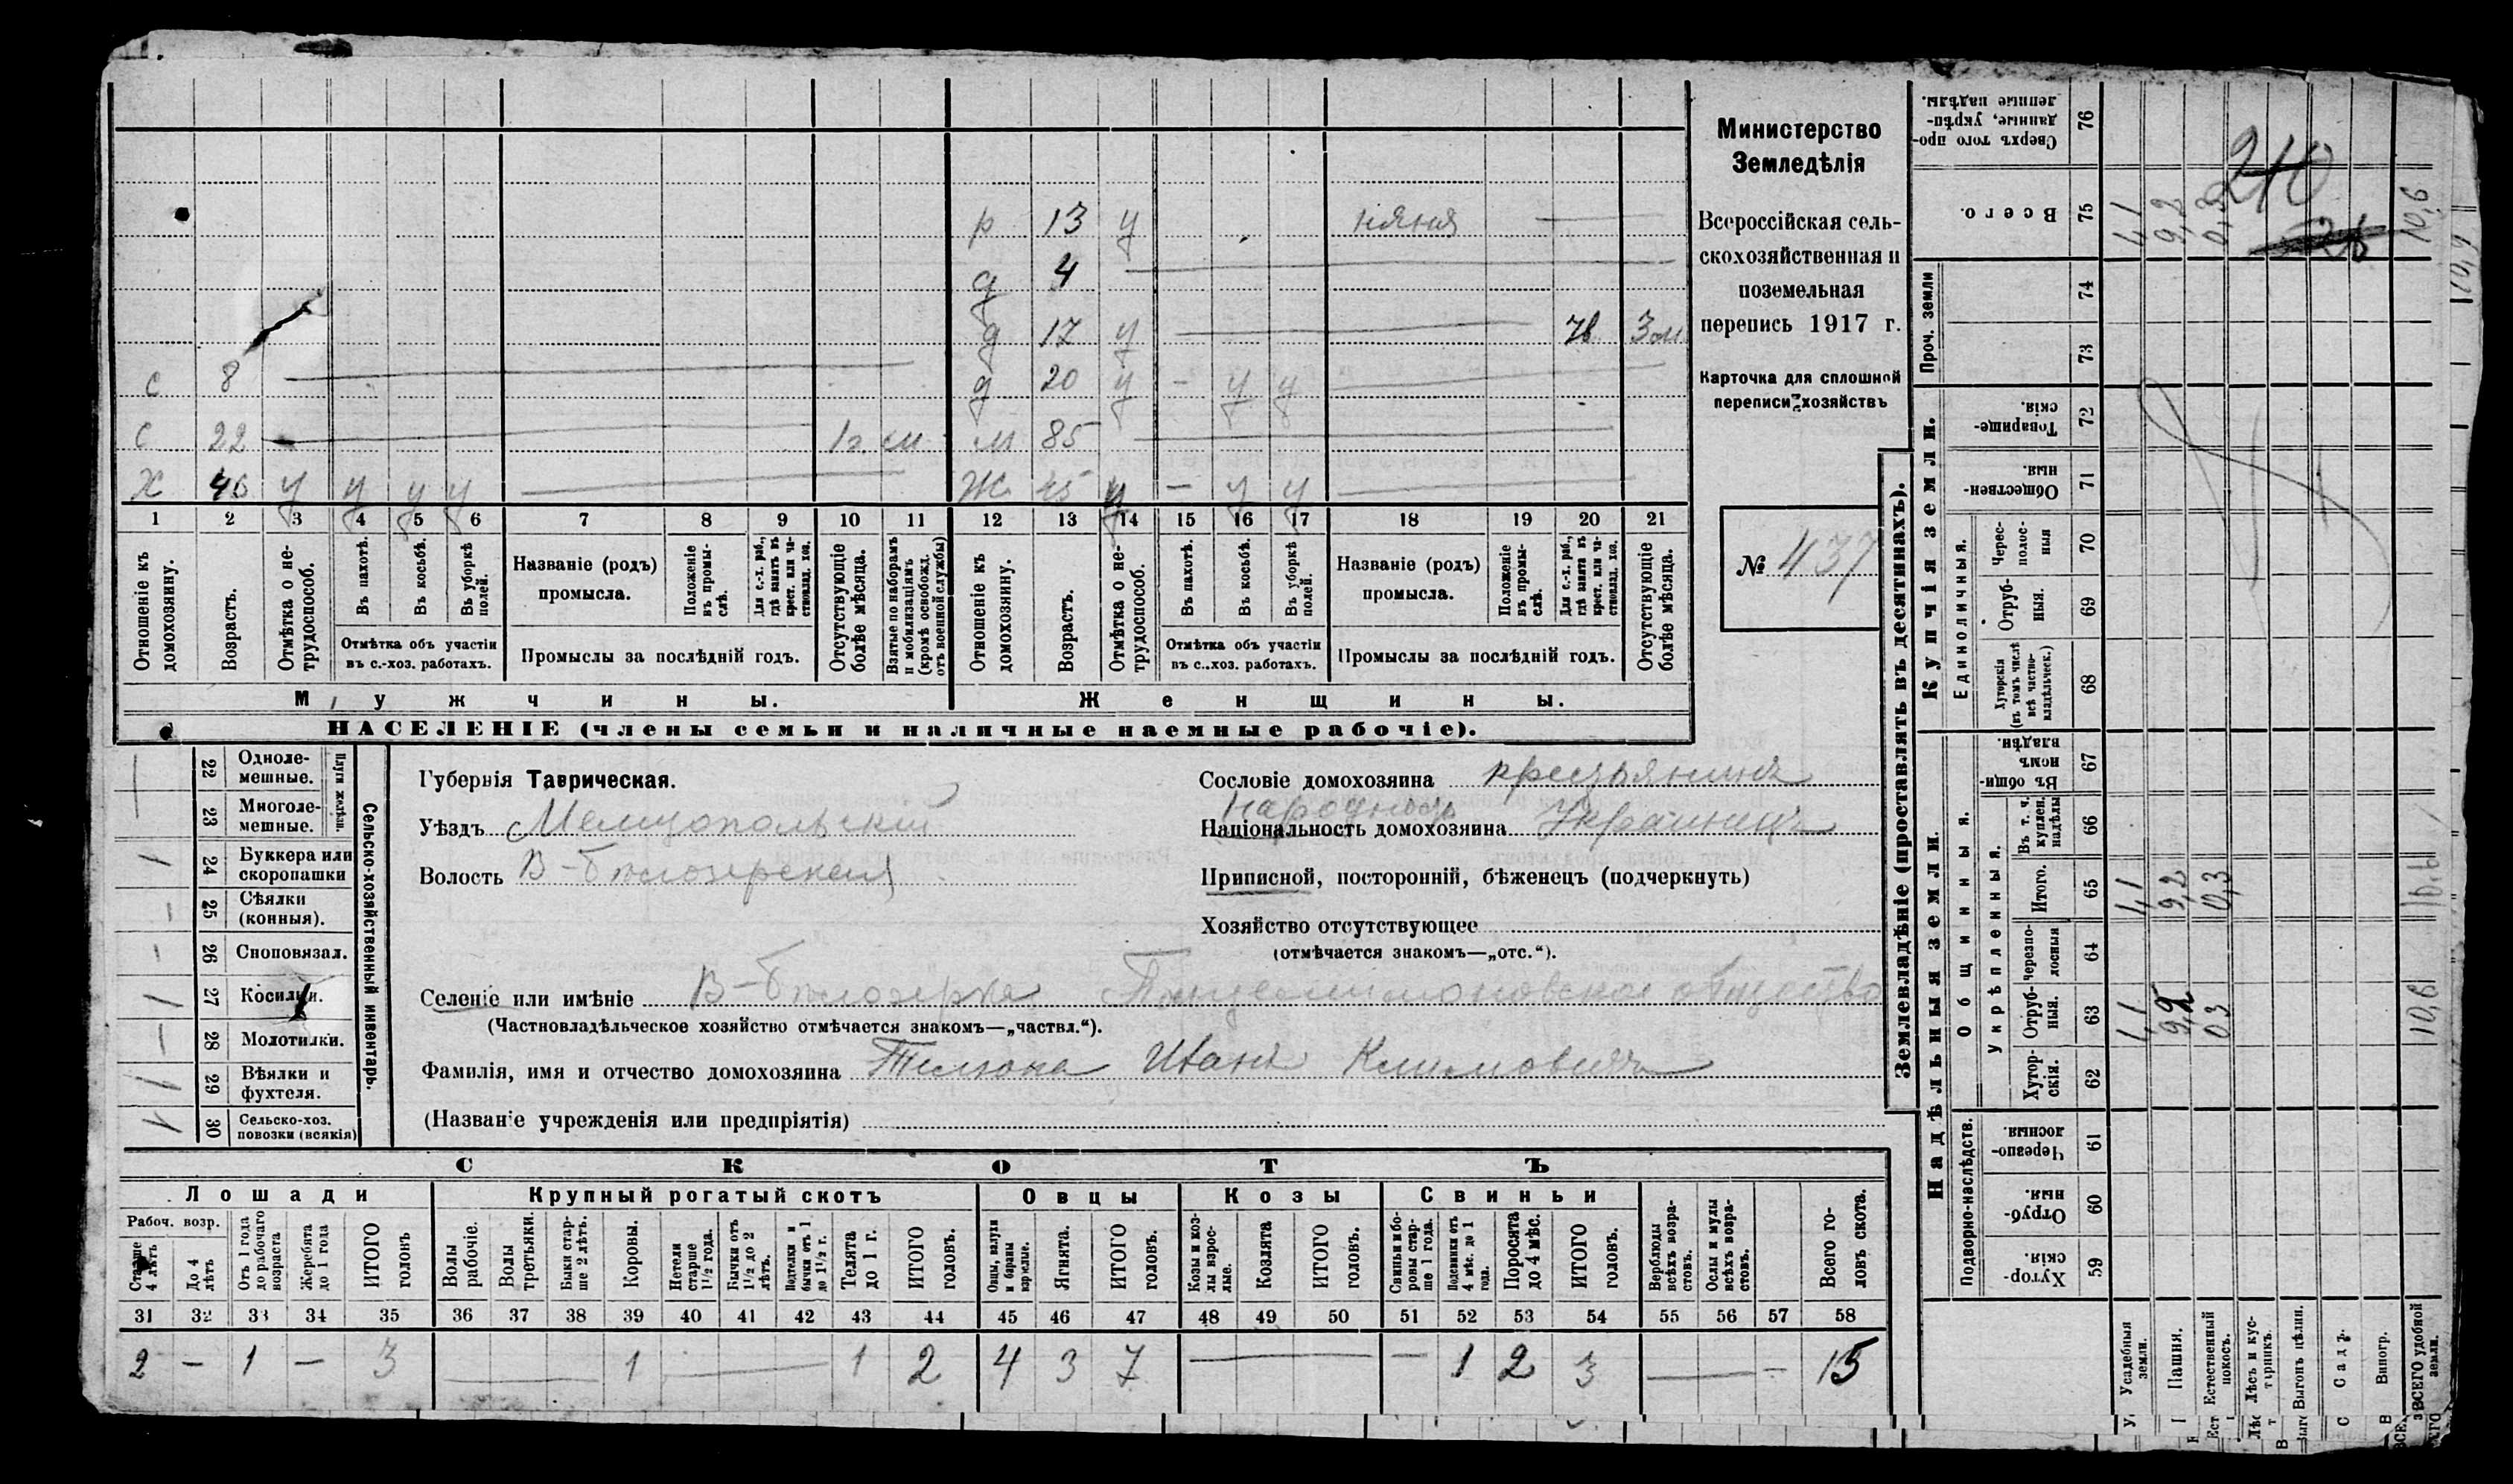 р 13 у няня —
д 4 —
д 17 у — 3 м.
с 8 — д 20 у - у у —
с 22 — 1 г. м. м 85 —
Х 46 у у у у — Ж 45 у — у у —
1 2 3 4 5 6 7 8 9 10 11 12 13 14 15 16 17 18 19 20 21
Отношеніе къ домохозяину.
Возрастъ.
Отмѣтка о не-трудоспособ.
Въ пахотѣ.
Въ косьбѣ.
Въ уборкѣ полей.
Отмѣтка объ участіи
въ с.-хоз. работахъ.
Названіе (родъ)
промысла.
Положеніе въ промы-слѣ.
Для с.-х. раб., гдѣ занятъ въ крест. или ча-стновлад. хоз.
Промыслы за послѣдній годъ.
Отсутствующіе болѣе мѣсяца.
Взятые по наборамъ и мобилизаціямъ (кромѣ освобожд. отъ военной службы)
Отношеніе къ домохозяину.
Возрастъ.
Отмѣтка о не-трудоспособ.
Въ пахотѣ.
Въ косьбѣ.
Въ уборкѣ полей.
Отмѣтка объ участіи
въ с.-хоз. работахъ.
Названіе (родъ)
промысла.
Положеніе въ промы-слѣ.
Для с.-х. раб., гдѣ занята въ крест. или ча-стновлад. хоз.
Промыслы за послѣдній годъ.
Отсутствующіе болѣе мѣсяца.
Мужчины. Женщины.
НАСЕЛЕНІЕ (члены семьи и наличные наемные рабочіе).
Министерство
Земледѣлія
Всероссійская сель-
скохозяйственная и
поземельная
перепись 1917 г.
Карточка для сплошной
переписи хозяйствъ
№ 437
Сельско-хозяйственный инвентарь.
Плуги желѣзн.
22 Одноле-мешные.
23 Многоле-мешные.
1 24 Буккера или скоропашки
— 25 Сѣялки (конныя).
— 26 Сноповязал.
1 27 Косилки.
— 28 Молотилки.
1 29 Вѣялки и фухтеля.
30 Сельско-хоз. повозки (всякія)
Губернія Таврическая.
Уѣздъ Мелитопольскій
Волость В-Бѣлозерская
Сословіе домохозяина крестьянинъ
Народность
Національность домохозяина Украинецъ
Приписной, посторонній, бѣженецъ (подчеркнуть)
Хозяйство отсутствующее
(отмѣчается знакомъ—„отс.“).
Селеніе или имѣніе В-Бѣлозерка общество
(Частновладѣльческое хозяйство отмѣчается знакомъ—„частвл.“).
Фамилія, имя и отчество домохозяина Иванъ Климовичъ
(Названіе учрежденія или предпріятія)
СКОТЪ
Лошади Крупный рогатый скотъ Овцы Козы Свиньи
Рабоч. возр.
Старше 4 лѣтъ
До 4 лѣтъ
Отъ 1 года до рабочаго возраста
Жеребята до 1 года
ИТОГО головъ
Волы рабочіе.
Волы третьяки.
Быки стар-ше 2 лѣтъ.
Коровы.
Нетели старше 1½ года.
Бычки отъ 1½ до 2 лѣтъ.
Подтелки и бычки отъ 1 до 1½ г.
Телята до 1 г.
ИТОГО головъ.
Овцы, валухи и бараны взрослые.
Ягнята.
ИТОГО головъ.
Козы и коз-лы взрос-лые.
Козлята
ИТОГО головъ.
Свиньи и бо-ровы стар-ше 1 года.
Подсвинки отъ 4 мѣс. до 1 года.
Поросята до 4 мѣс.
ИТОГО головъ.
Верблюды всѣхъ возра-стовъ.
Ослы и мулы всѣхъ возра-стовъ.
Всего го-ловъ скота.
31 32 33 34 35 36 37 38 39 40 41 42 43 44 45 46 47 48 49 50 51 52 53 54 55 56 57 58
2 — 1 — 3 — 1 — 1 2 4 3 7 — — 1 2 3 — — 15
Землевладѣніе (проставлять въ десятинахъ).
Надѣльныя земли.
Купчія земли.
Проч. земли
Подворно-наслѣдств.
Общинныя.
Укрѣпленныя.
Единоличныя.
Сверхъ того про-данные, укрѣп-ленные надѣлы. 76
Всего. 75 1,1 9,2 0,3 10,6
210
26
10,9
74
73
Товарище-скія. 72
Обществен-ныя. 71
Черес-полос-ныя 70
Отруб-ныя. 69
Хуторскія (въ томъ числѣ всѣ частно-владѣльческ.) 68
Въ общин-номъ владѣн. 67
Въ т. ч. куплен. надѣлы 66
Итого. 65 1,1 9,2 0,3 10,6
черезпо-лосныя 64
Отруб-ныя. 63 1,1 9,2 03 10,6
Хутор-скія. 62
Черезпо-лосныя. 61
Отруб-ныя. 60
Хутор-скія. 59
Усадебныя земли.
Пашня.
Естественный покосъ.
Лѣсъ и кус-тарникъ.
Выгонъ цѣлин.
Садъ.
Виногр.
ВСЕГО удобной земли.